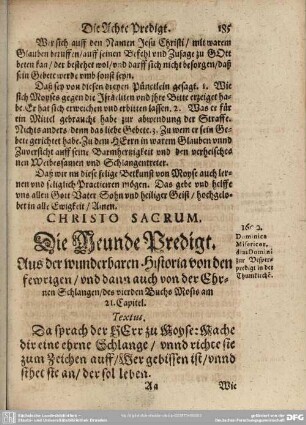 Die Achte Predigt. 185
Wer sich auff den Namen Jesu Christi / mit warem
Glauben beruffen / auff seinen Befehl vnd Zusage zu GOtt
beten kan / der bestehet wol / vnd darff sich nicht besorgen / daß
sein Gebett werde vmb sonst seyn.
Daß sey von diesen dreyen Pünctlein gesagt. 1. Wie
sich Moyses gegen die Israeliten vnd ihre Bitte erzeiget ha-
be. Er hat sich erweichen vnd erbitten lassen. 2. Was er für
ein Mittel gebraucht habe zur abwendung der Straffe.
Nichts anders, denn das liebe Gebett. 3. Zu wem er sein Ge-
bete gerichtet habe. Zu dem HErrn in warem Glauben vnnd
Zuversicht auff seine Barmhertzigkeit vnd den verheischenen
Weibessamen vnd Schlangentreter.
Daß wir nu diese selige Betkunst von Moyse auch ler-
nen vnd seliglich Practicieren mögen. Das gebe vnd helffe
vns allen Gott Vater Sohn vnd heiliger Geist / hochgelo-
bet in alle Ewigkeit / Amen.
CHRISTO SACRUM.
Die Neunde Predigt.
Aus der wunderbaren Historia von den
fewrigen / vnd dann auch von der Ehr-
nen Schlangen / des vierden Buchs Mosis am
21. Capitel.
Dominica
Misericor.
dias Domini
zur Vesper
predigt in der
Thumkirche.
Textus.
Da sprach der HErr zu Moyse: Mache
dir eine ehrne Schlange / vnnd richte sie
zum Zeichen auff / Wer gebissen ist / vnnd
sihet sie an / der sol leben.
Aa Wie